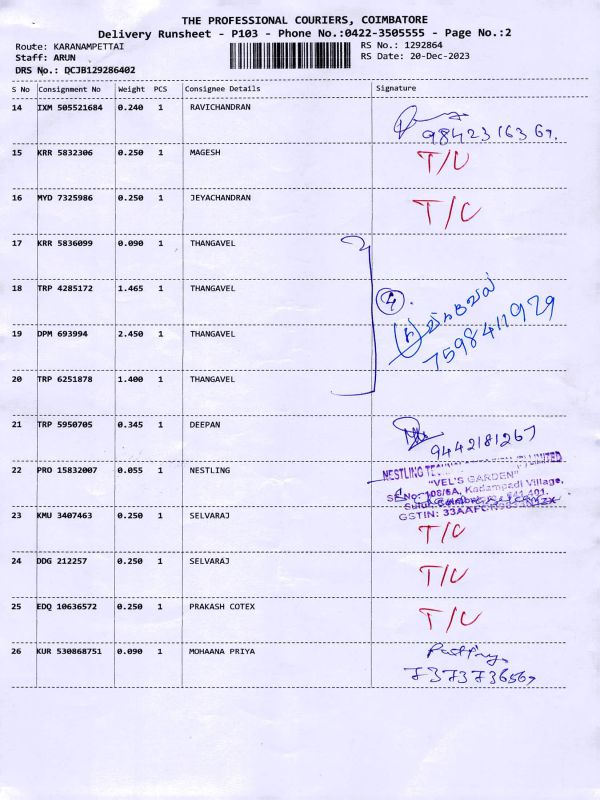 THE PROFESSIONAL COURIERS, COIMBATORE
Delivery Runsheet - P103 - Phone No.:0422-3505555 - Page No.:2
Route: KARANAMPETTAI RS No.: 1292864
Staff: ARUN RS Date: 20-Dec-2023
DRS No.: DCJB129286402
S No Consignment No Weight PCS Consignee Details Signature
14 IXM 505521684 0.240 1 RAVICHANDRAN
15 KRR 5832306 0.250 1 MAGESH T/C
16 MYD 7325986 0.250 1 JEYACHANDRAN T/C
17 KRR 5836099 0.090 1 THANGAVEL
18 TRP 4285172 1.465 1 THANGAVEL
4
19 DPM 693994 2.450 1 THANGAVEL
7598411929
20 TRP 6251878 1.400 1 THANGAVEL
21 TRP 5950705 0.345 1 DEEPAN
9442181267
22 PRO 15832007 0.055 1 NESTLING
NESTLING LIMITED
"VEL'S GARDEN"
SF.No: 108/6A, Kadampadi Village,
Sulur, 641 401.
GSTIN:
23 KMU 3407463 0.250 1 SELVARAJ T/C
24 DDG 212257 0.250 1 SELVARAJ T/C
25 EDQ 10636572 0.250 1 PRAKASH COTEX T/C
26 KUR 530868751 0.090 1 MOHAANA PRIYA